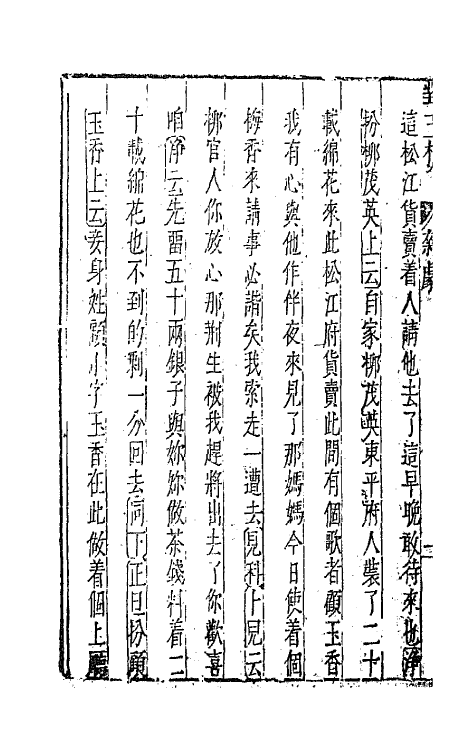 這松江貨賣着人請他去了這早晚敢待來也淨
扮柳茂英上云自家柳茂英東平府人裝了二十
載綿花來此松江府貨賣此間有個歌者顧玉香
我有心與他作伴夜來見了那媽媽今日使着個
梅香來請事必諧矣我索走一遭去見科卜見云
柳官人你放心那荆生被我趕將出去了你歡喜
咱淨云先留五十兩銀子與妳妳做茶錢料着二
十載綿花也不到的剩一分回去同下正旦扮顧
玉香上云妾身姓顧小字玉香在此做着個上廳